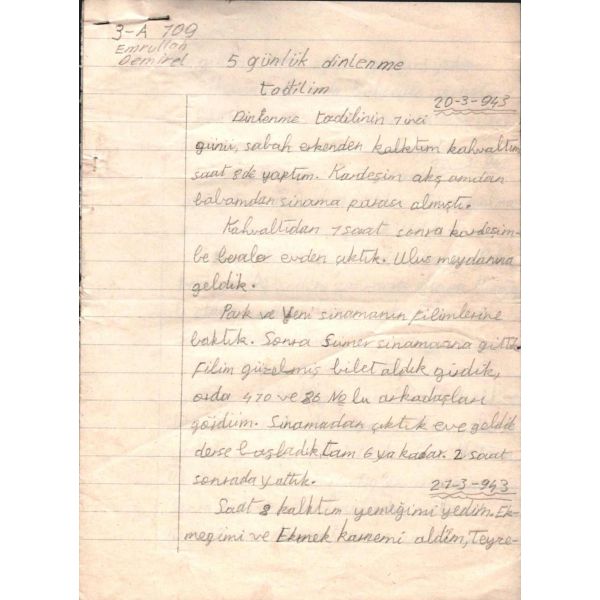 3-A 109
Emrullah
Demirel
5 günlük dinlenme
tadilim
20-3-943
Dinlenme tadilinin 1 inci
günü, sabah erkenden kalktım kahvaltım
saat 8de yaptım. Kardeşim akşamdan
babamdan sinama parası almıştı.
Kahvaltıdan 1 saat sonra kardeşim-
be beraber evden çıktık. Ulus meydanına
geldik.
Park ve Yeni sinamanın filimlerine
baktık. Sonra Sümer sinamasına gittik
Filim güzelmiş bilet aldık girdik,
orda 470 ve 86 No lu arkadaşları
gördüm. Sinamadan çıktık eve geldik
derse başladık tam 6 ya kadar. 2 saat
sonrada yattık.
21-3-943
Saat 8 kalktım yemeğimi yedim. Ek-
megimi ve Ekmek karnemi aldım, Teyze-